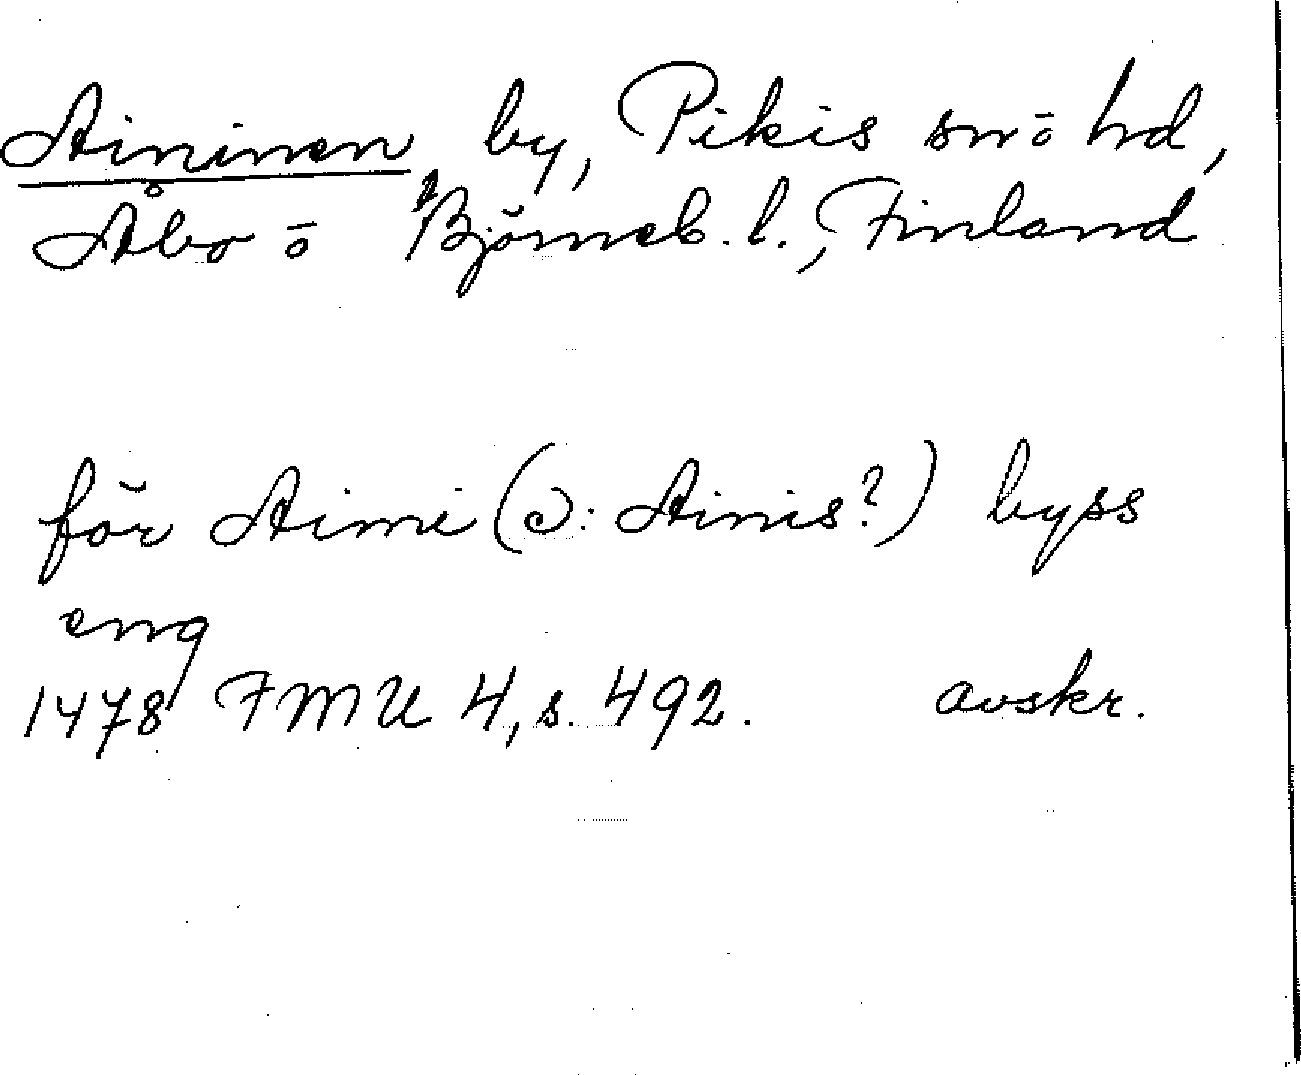 Aininen by, Pikis sn ō hd,
Åbo ō Björneb. l., Finland
för Aimi (ɔ: Ainis?) byss
eng
1478 FMU 4, s. 492. avskr.